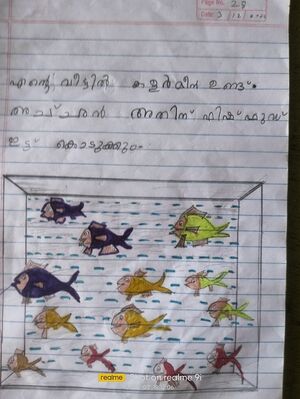 Page No. 29
Date: 3/12/
എന്റെ വീട്ടിൽ കളർമീൻ ഉണ്ട്.
അച്ചൻ അതിന് ഫിഷ്ഫുഡ്
ഇട്ട് കൊടുക്കും.
realme Shot on realme 9i